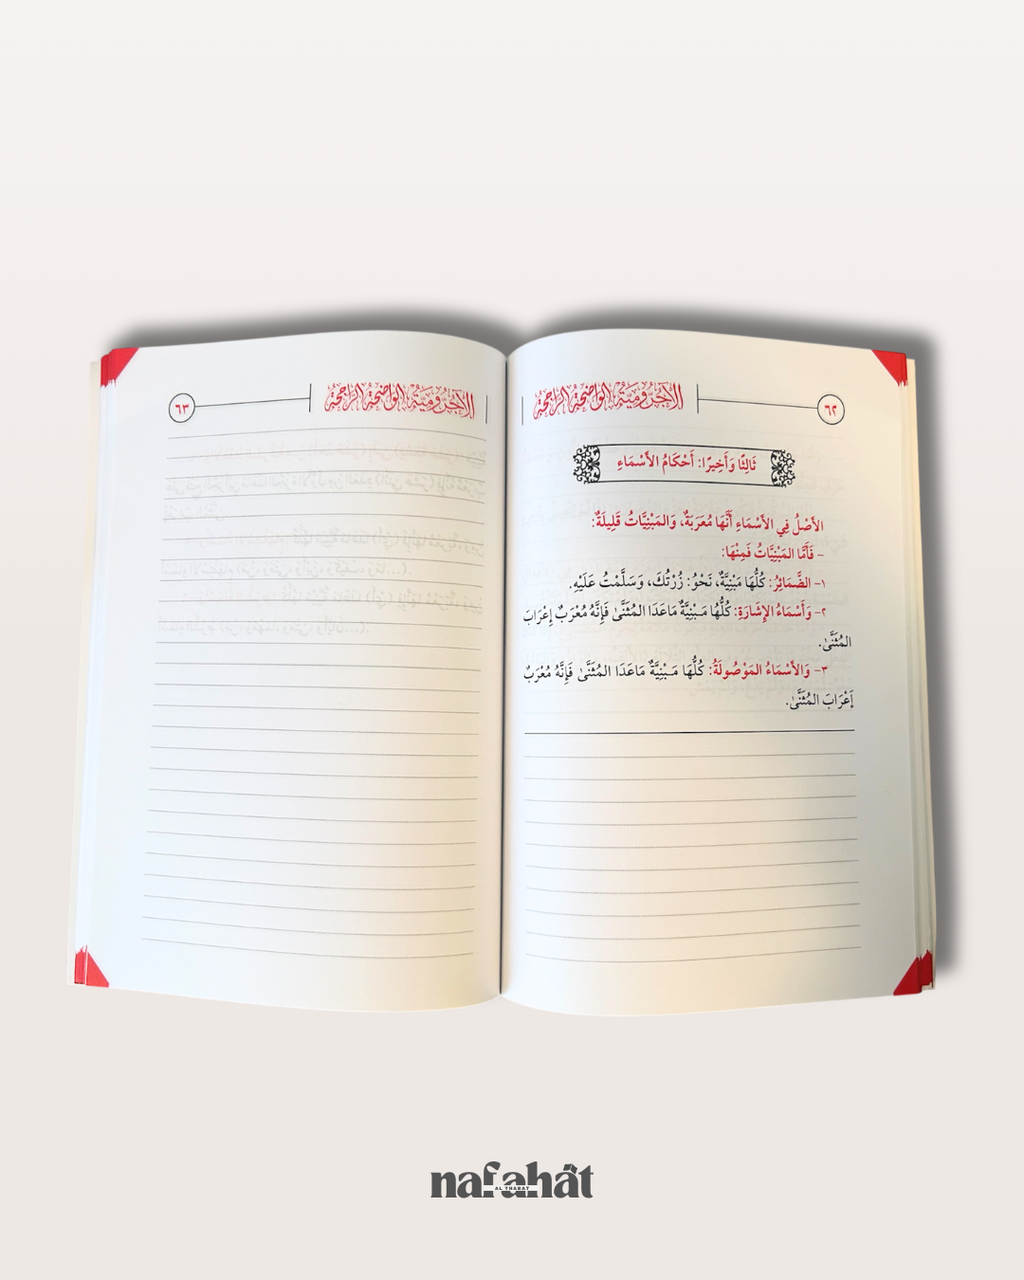 الآجرومية الواضحة الراجحة
٦٢
ثَالِثًا وَأَخِيرًا: أَحْكَامُ الأَسْمَاءِ
الأَصْلُ فِي الأَسْمَاءِ أَنَّهَا مُعَرَبَةٌ، وَالمَبْنِيَّاتُ قَلِيلَةٌ:
– فَأَمَّا المَبْنِيَّاتُ فَمِنْهَا:
١– الضَّمَائِرُ: كُلُّهَا مَبْنِيَّةٌ، نَحْوُ: زُرْتُكَ، وَسَلَّمْتُ عَلَيْهِ.
٢– وَأَسْمَاءُ الإِشَارَةِ: كُلُّهَا مَبْنِيَّةٌ مَاعَدَا المُثَنَّىٰ فَإِنَّهُ مُعْرَبٌ إِعْرَابَ
المُثَنَّىٰ.
٣– وَالأَسْمَاءُ المَوْصُولَةُ: كُلُّهَا مَبْنِيَّةٌ مَاعَدَا المُثَنَّىٰ فَإِنَّهُ مُعْرَبٌ
إَعْرَابَ المُثَنَّىٰ.
الآجرومية الواضحة الراجحة
٦٣
nafahât
AL THABAT